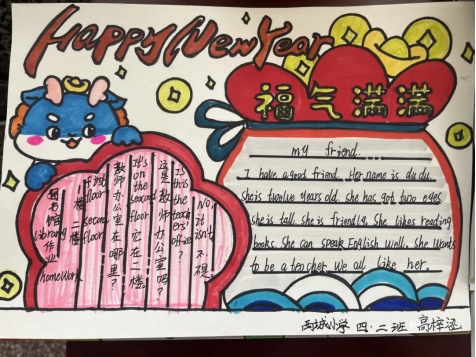 Happy New Year
福气满满
my friend
I have a good friend. Her name is du du.
she is twelve years old. she has got two eyes
she is tall. she is friendly. She likes reading
books. She can speak English well. She wants
to be a teacher. We all like her.
图书馆
library 作业
homework
first floor 一楼
second floor 二楼
教师办公室在哪里?
It's on the second floor. 它在二楼。
这是教师办公室吗?
Is this the teachers' office?
No, it isn't. 不是。
西城小学 四·二班 高梓涵